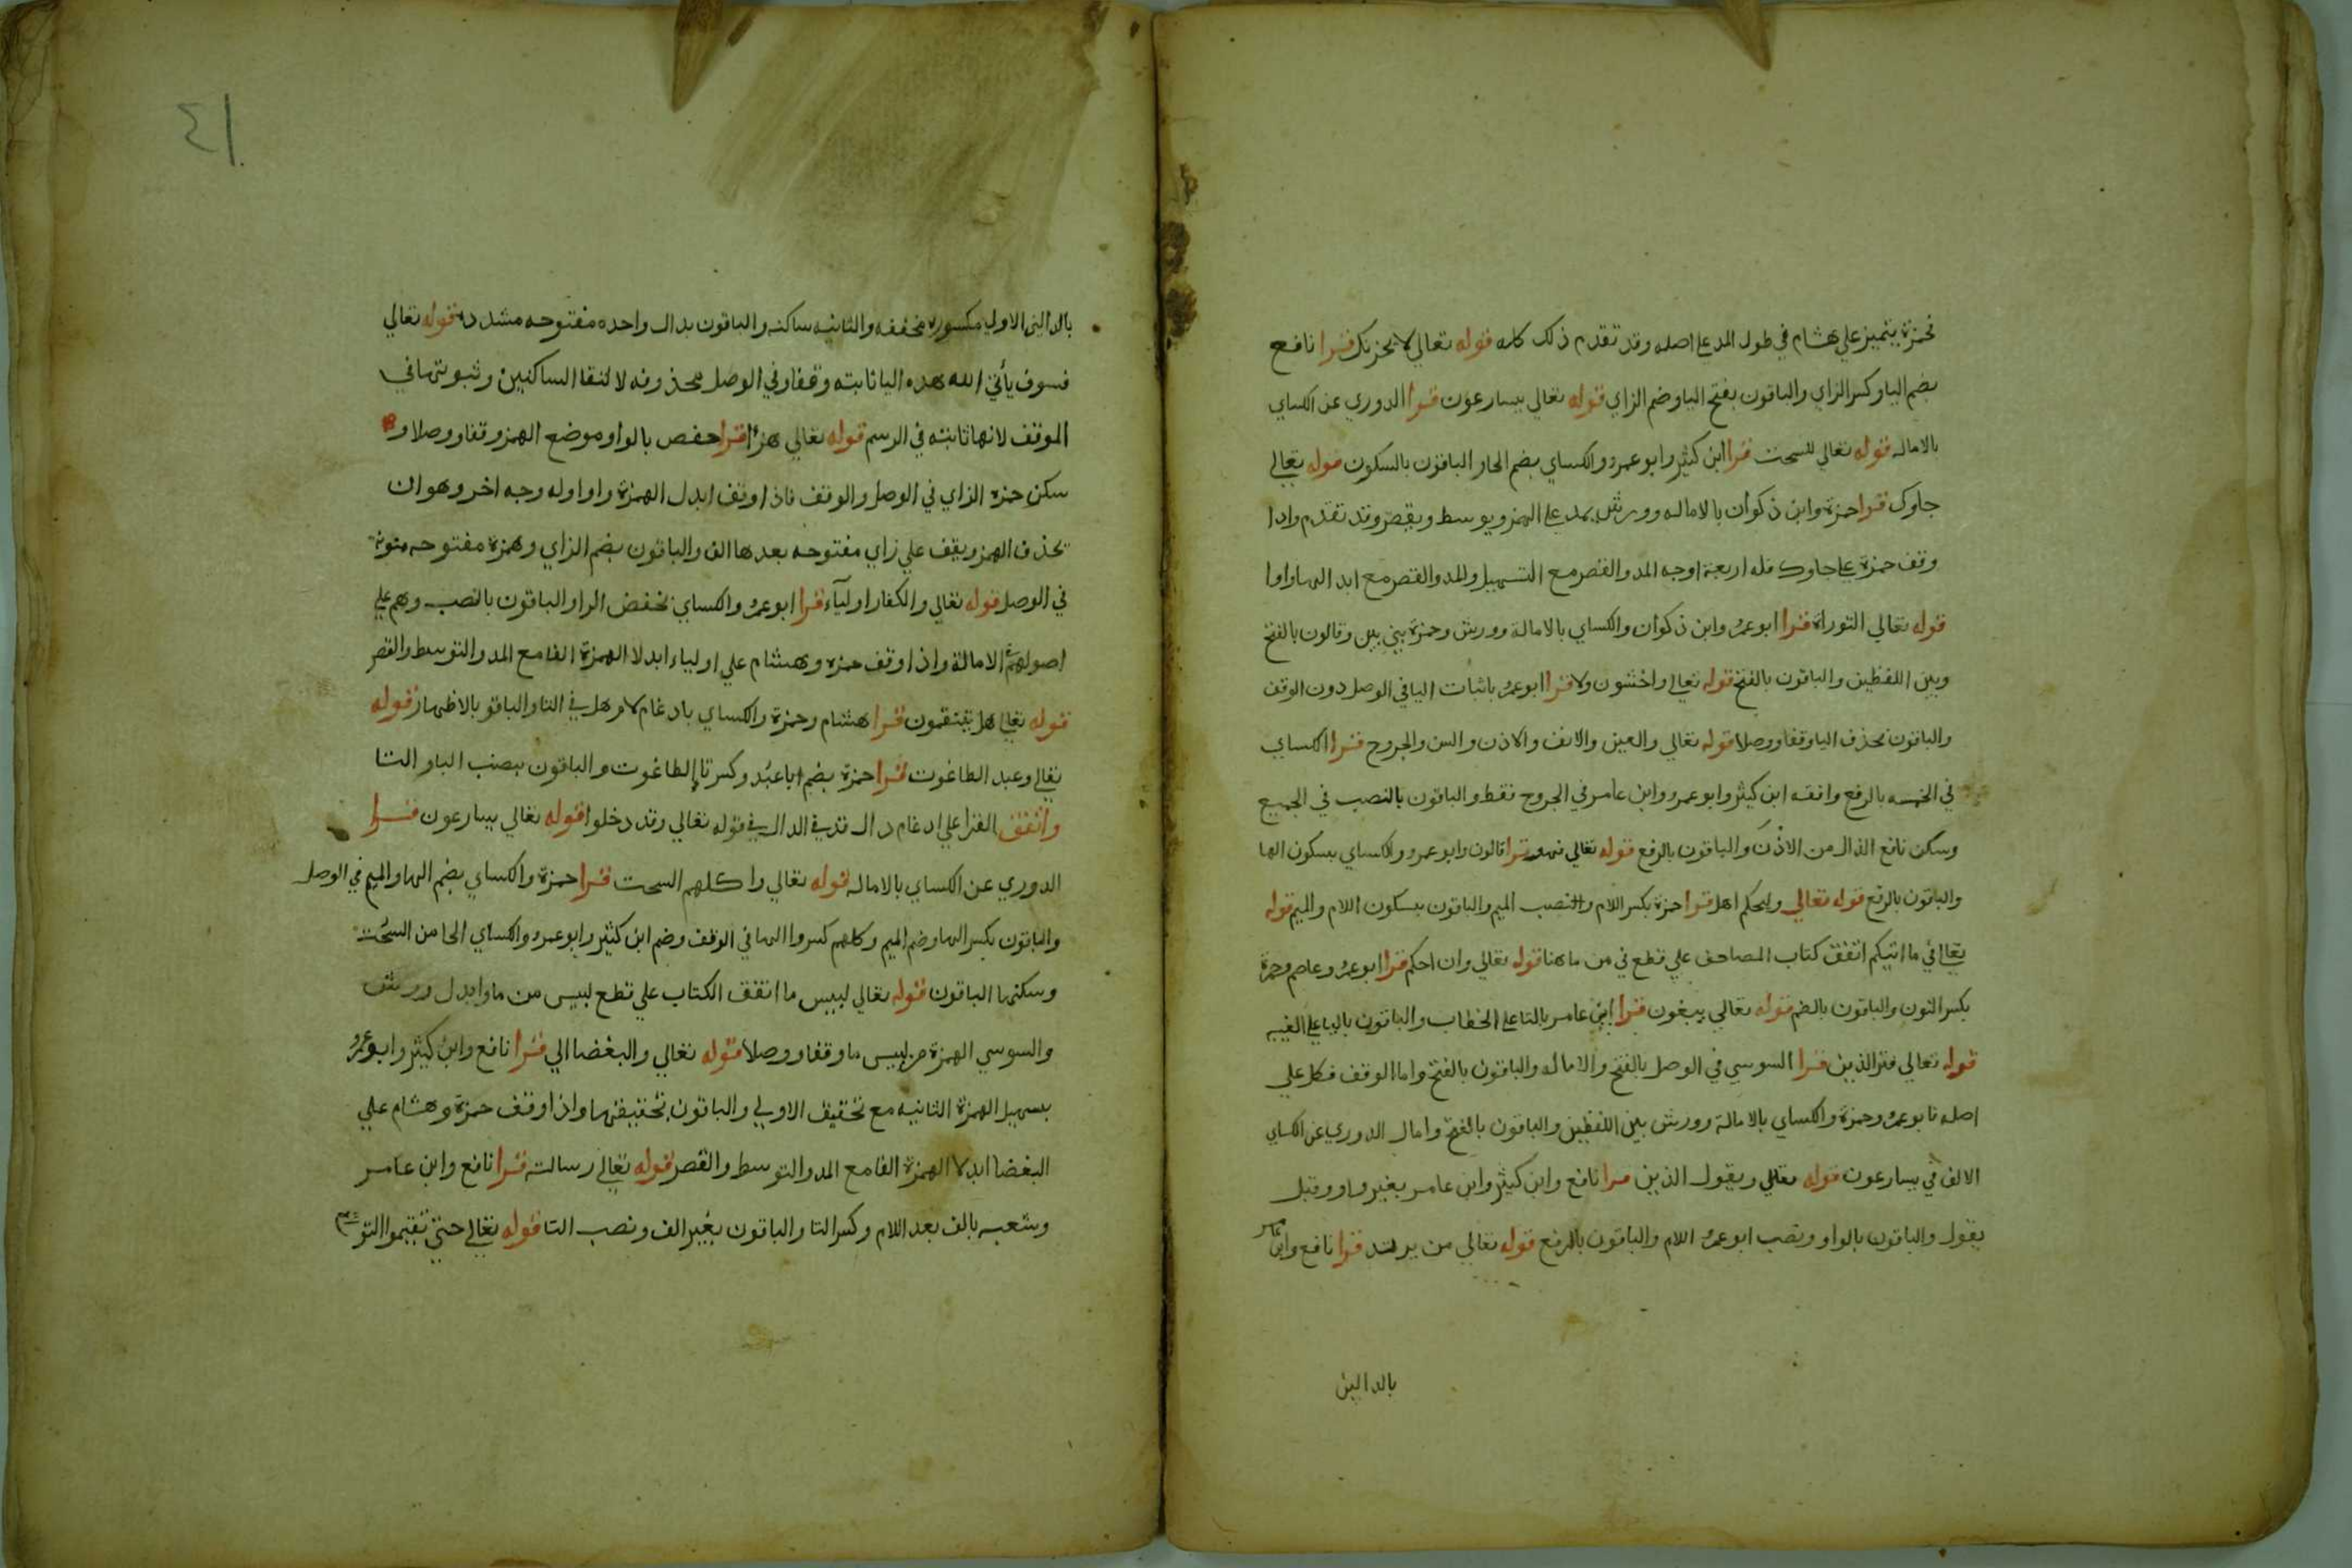 فحمزة يتميز علي هشام في طول المد علي اصله وقد تقدم ذلك كله قوله تعالي لا يحزنك قرا نافع
بضم اليا وكسر الزاي والباقون بفتح اليا وضم الزاي قوله تعالي يسارعون قرا الدوري عن الكساي
بالاماله قوله تعالي للسحت قرا ابن كثير وابو عمرو والكساي بضم الحا والباقون بالسكون قوله تعالي
جاوك قرا حمزة وابن ذكوان بالاماله وورش يمد علي الهمز ويوسط ويقصر وقد تقدم واذا
وقف حمزة علي جاوك فله اربعة اوجه المد والقصر مع التسهيل والمد والقصر مع ابدالها واوا
قوله تعالي التوراة قرا ابو عمرو وابن ذكوان والكساي بالامالة وورش وحمزة بين بين وقالون بالفتح
وبين اللفظين والباقون بالفتح قوله تعالي واخشون ولا قرا ابو عمرو باثبات اليا في الوصل دون الوقف
والباقون بحذف اليا وقفا ووصلا قوله تعالي والعين والانف والاذن والسن والجروح قرا الكساي
في الخمسه بالرفع وافقه ابن كثير وابو عمرو وابن عامر في الجروح فقط والباقون بالنصب في الجميع
وسكن نافع الذال من الاذن والباقون بالرفع قوله تعالي فهو قرا قالون وابو عمرو والكساي بسكون الها
والباقون بالرفع قوله تعالي وليحكم اهل قرا حمزة بكسر اللام والنصب الميم والباقون بسكون اللام والميم قوله
تعالي في ما اتيكم اتفق كتاب المصاحف علي قطع في من ما هنا قوله تعالي وان احكم قرا ابو عمرو وعاصم وحمزة
بكسر النون والباقون بالضم قوله تعالي يبغون قرا ابن عامر بالتا علي الخطاب والباقون باليا علي الغيبه
قوله تعالي فترا الذين قرا السوسي في الوصل بالفتح والاماله والباقون بالفتح واما الوقف فكل علي
اصله فابو عمرو وحمزة والكساي بالامالة وورش بين اللفظين والباقون بالفتح وامال الدوري عن الكساي
الالف في يسارعون قوله تعالي ويقول الذين قرا نافع وابن كثير وابن عامر بغير واو وقبل
يقول والباقون بالواو ونصب ابو عمرو اللام والباقون بالرفع قوله تعالي من يرتد قرا نافع وابن عامر
بالدالين
٤١
بالدالين الاولي مكسوره مخففه والثانيه ساكنه والباقون بدال واحده مفتوحه مشدده قوله تعالي
فسوف يأتي الله هذه اليا ثابته وقفا وفي الوصل محذوفه لالتقا الساكنين وثبوتها في
الوقف لانها ثابته في الرسم قوله تعالي هزؤا قرا حفص بالواو موضع الهمز وقفا ووصلا و
سكن حمزه الزاي في الوصل والوقف فاذا وقف ابدل الهمزة واوا وله وجه اخر وهو ان
يحذف الهمز ويقف علي زاي مفتوحه بعدها الف والباقون بضم الزاي وهمزة مفتوحه منونة
في الوصل قوله تعالي والكفار اوليآء قرا ابو عمرو والكساي بخفض الرا والباقون بالنصب وهم علي
اصولهم في الامالة واذا وقف حمزه وهشام علي اولياء ابدلا الهمزة الفا مع المد والتوسط والقصر
قوله تعالي هل تنقمون قرا هشام وحمزة والكساي بادغام لام هل في التا والباقو بالاظهار قوله
تعالي وعبد الطاغوت قرا حمزة بضم ابا عبد وكسر تا الطاغوت والباقون بنصب البا والتا
واتفق القرا علي ادغام دال قد في الدال في قوله تعالي وقد دخلوا قوله تعالي يسارعون قرا
الدوري عن الكساي بالاماله قوله تعالي واكلهم السحت قرا حمزة والكساي بضم الها والميم في الوصل
والباقون بكسر الها وضم الميم وكلهم كسروا الها في الوقف وضم ابن كثير وابو عمرو والكساي الحا من السحت
وسكنها الباقون قوله تعالي لبيس ما اتفق الكتاب علي قطع لبيس من ما وابدل ورش
والسوسي الهمزة من لبيس ما وقفا ووصلا قوله تعالي والبغضا الي قرا نافع وابن كثير وابو عمرو
بسهيل الهمزة الثانيه مع تحقيق الاولي والباقون بتحقيقهما واذا وقف حمزة وهشام علي
البغضا ابدلا الهمزة الفا مع المد والتوسط والقصر قوله تعالي رسالته قرا نافع وابن عامر
وشعبه بالف بعد اللام وكسر التا والباقون بغير الف ونصب التا قوله تعالي حتي تقيموا التورية